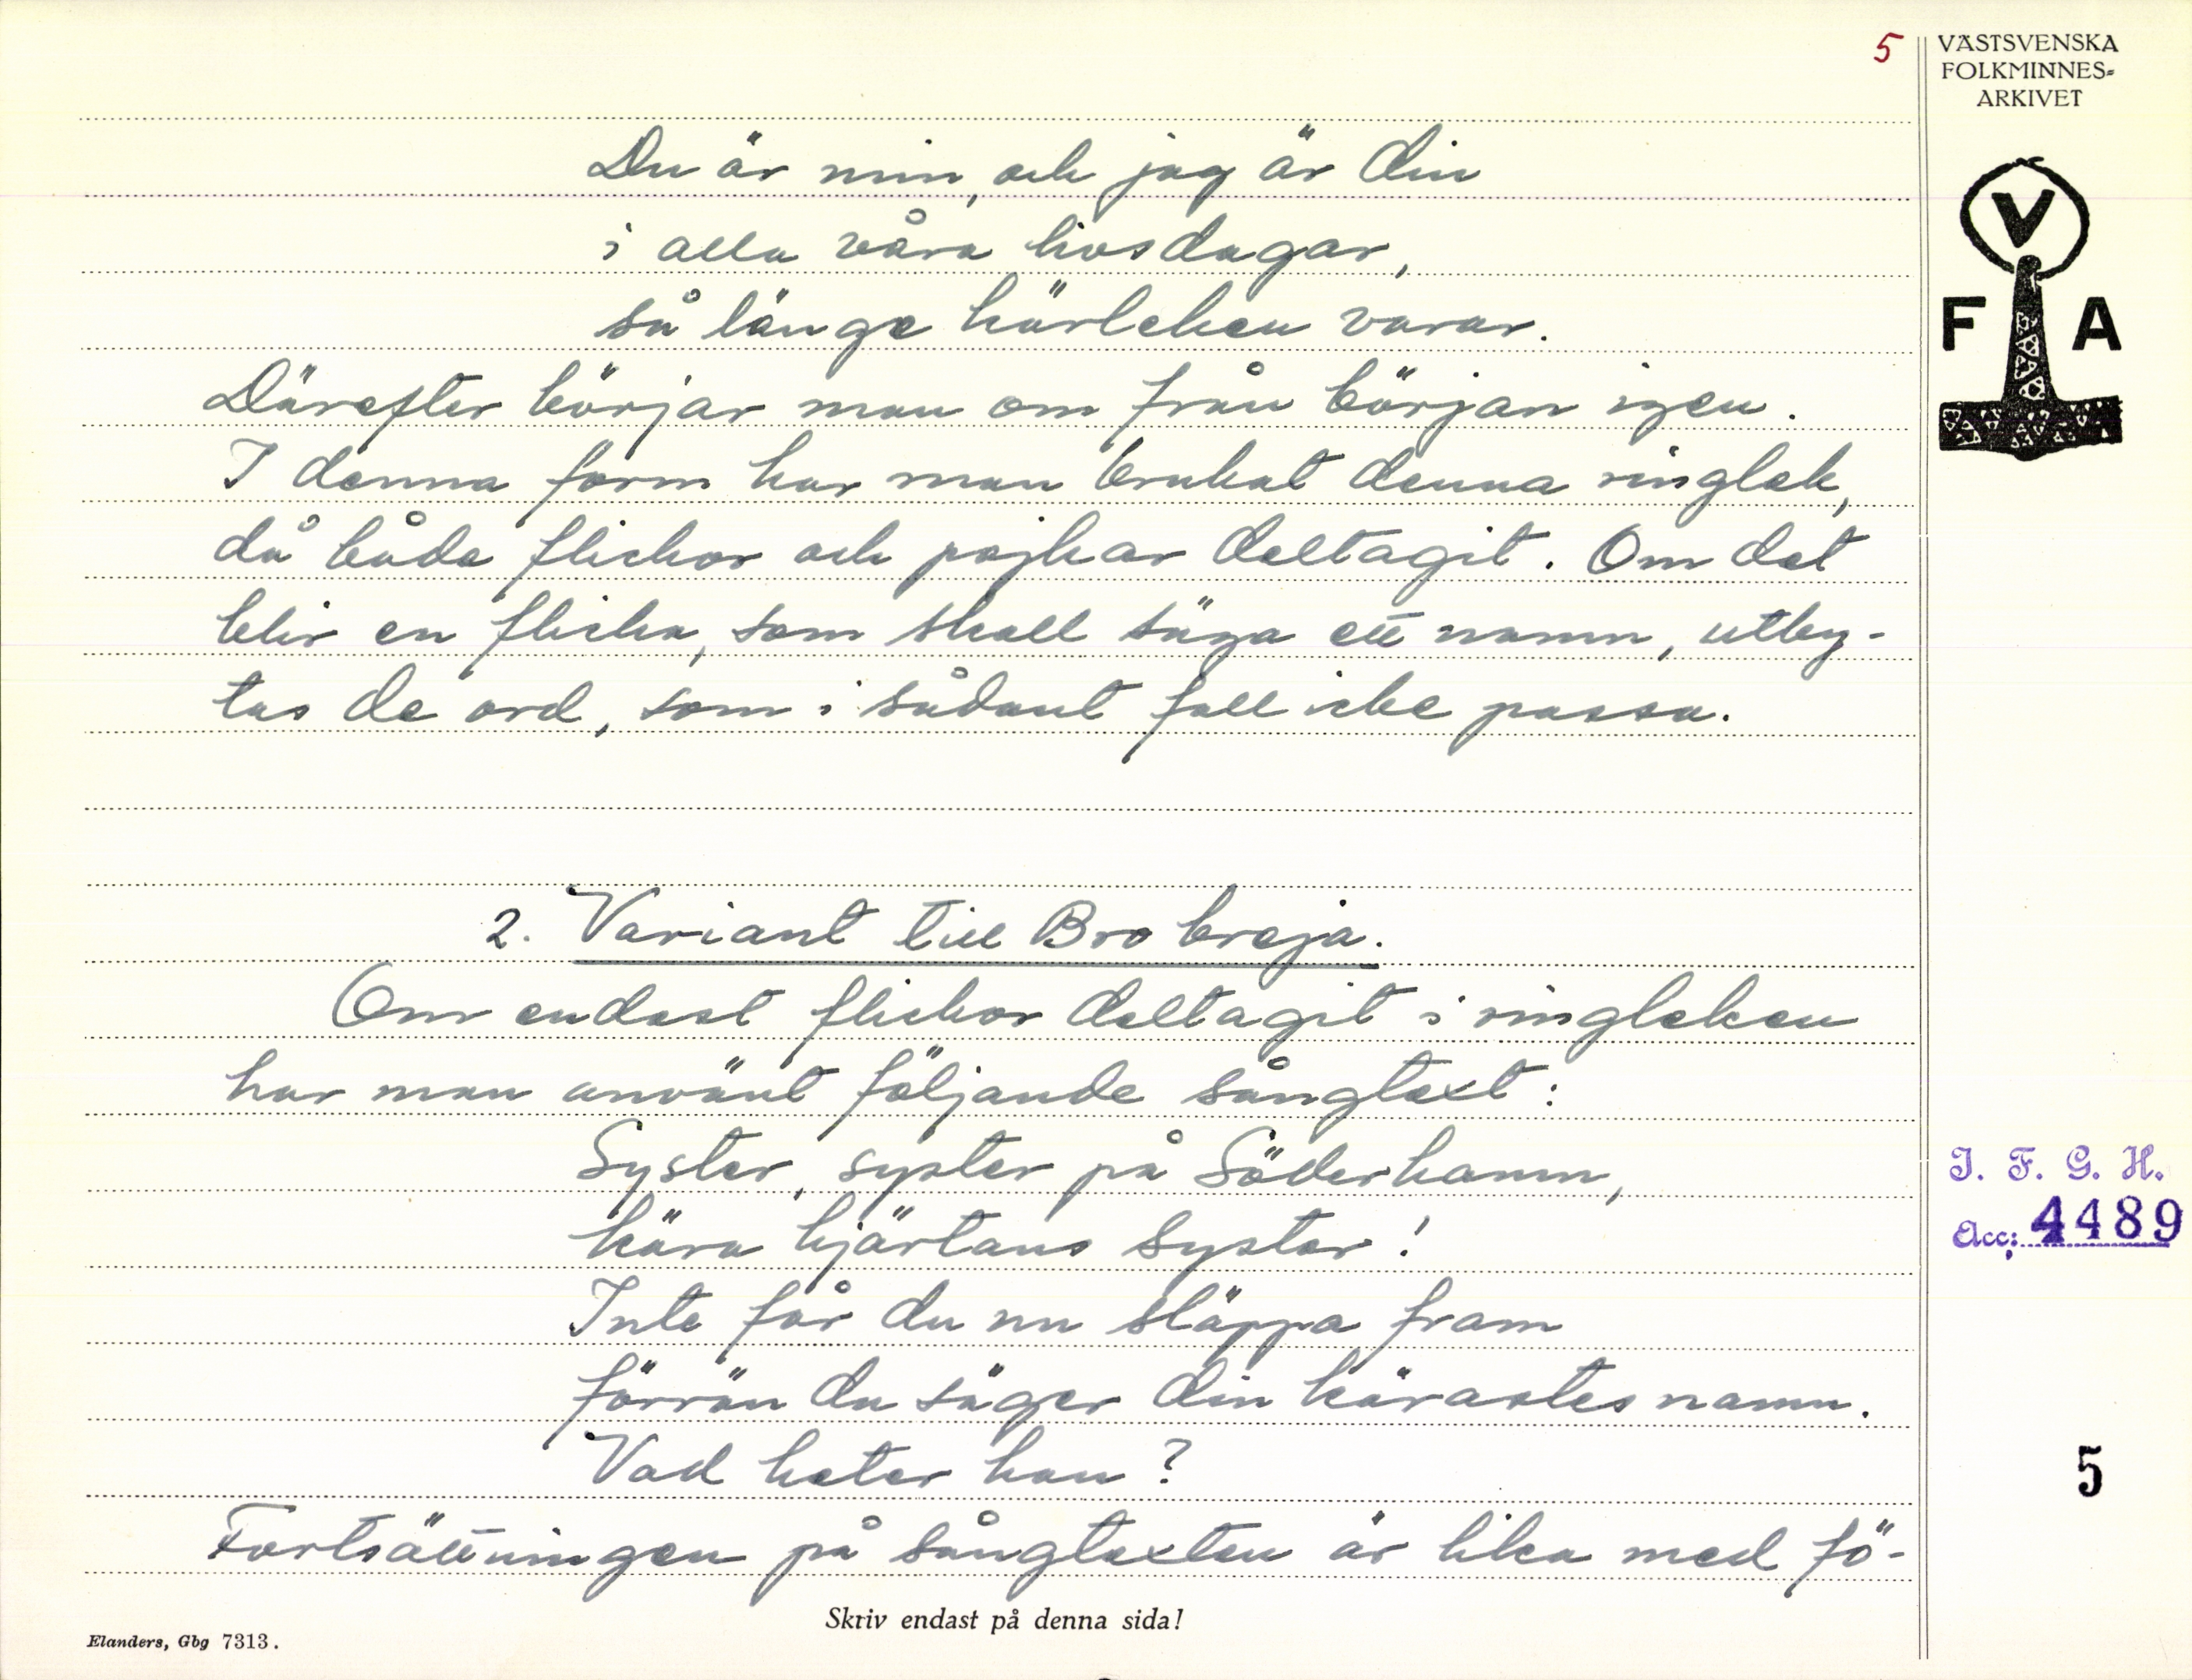 5
VÄSTSVENSKA
FOLKMINNES=
ARKIVET
V
F A
Du är min, och jag är din
i alla våra livsdagar,
så länge kärleken varar.
Därefter börjar man om från början igen.
I denna form har man brukat denna ringlek,
då både flickor och pojkar deltagit. Om det
blir en flicka, som skall säga ett namn, utby-
tas de ord, som i sådant fall icke passa.
2. Variant till Bro breja.
Om endast flickor deltagit i ringleken
har man använt följande sångtext:
Syster, syster på Söderhamn,
kära hjärtans syster!
Inte får du nu släppa fram
förrän du säger din kärastes namn.
Vad heter han?
Fortsättningen på sångtexten är lika med fö-
I. F. G. H.
Acc: 4489
5
Skriv endast på denna sida!
Elanders, Gbg 7313.